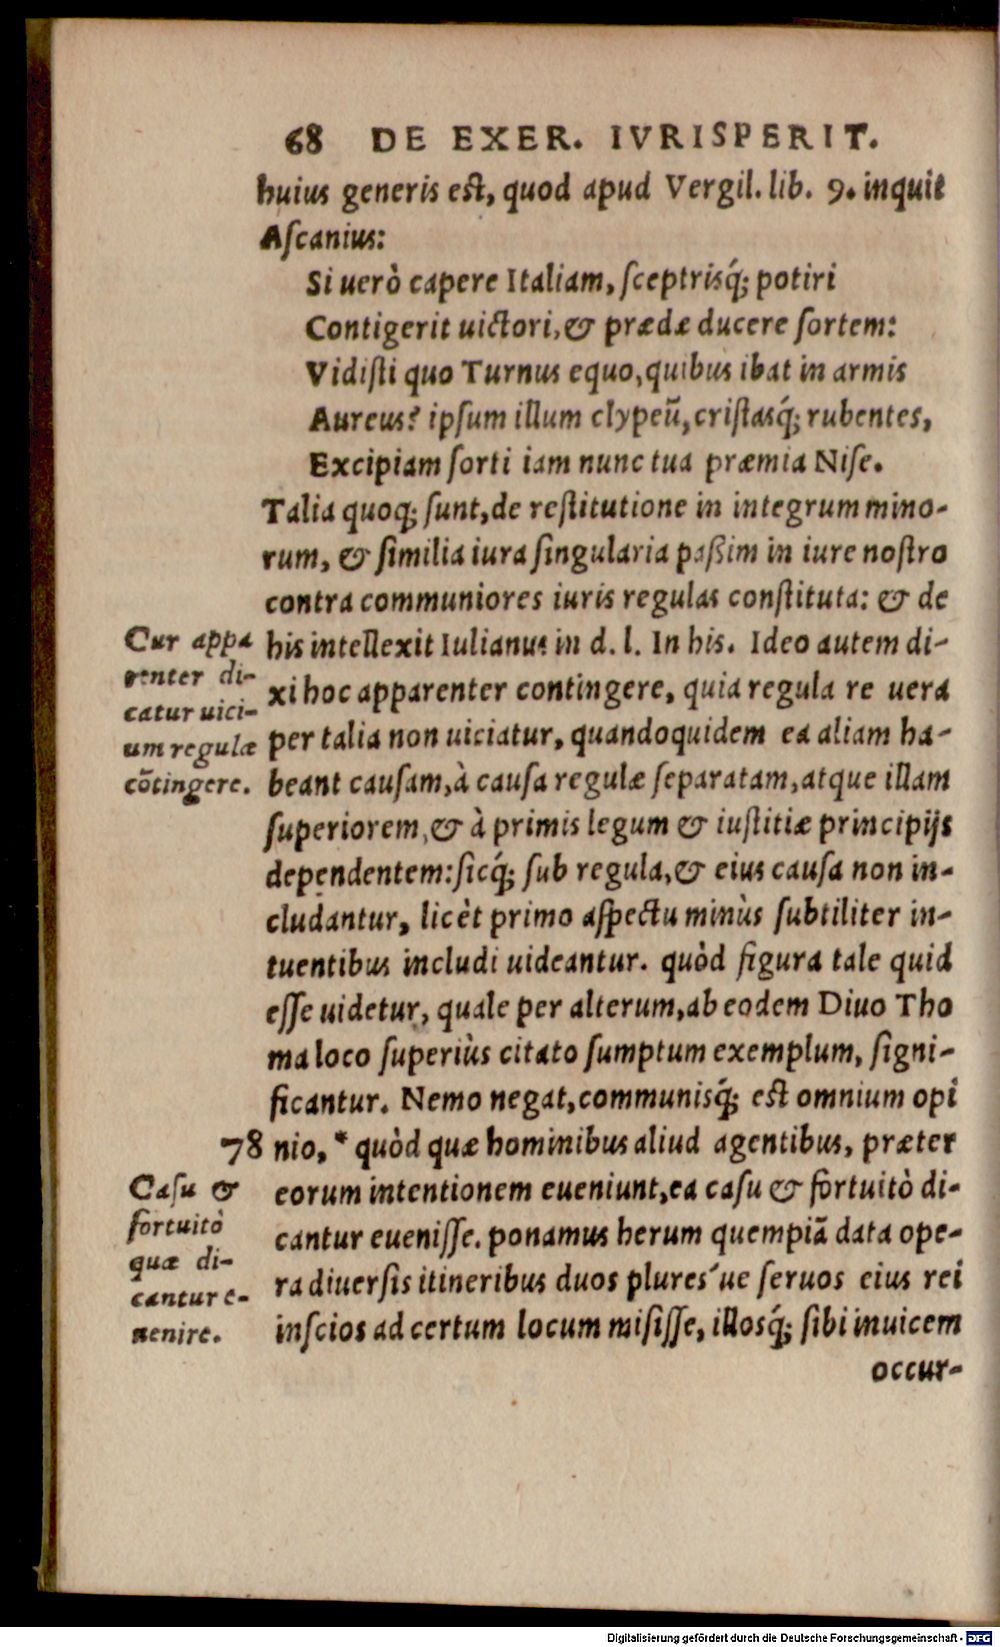 68 DE EXER. IVRISPERIT.
huius generis est, quod apud Vergil. lib. 9. inquit
Ascanius:
Si uerò capere Italiam, sceptrisq́; potiri
Contigerit uictori, & prædæ ducere sortem:
Vidisti quo Turnus equo, quibus ibat in armis
Aureus? ipsum illum clypeũ, cristasq́; rubentes,
Excipiam sorti iam nunc tua præmia Nise.
Talia quoq; sunt, de restitutione in integrum mino-
rum, & similia iura singularia paßim in iure nostro
contra communiores iuris regulas constituta: & de
his intellexit Iulianus in d. l. In his. Ideo autem di-
xi hoc apparenter contingere, quia regula re uera
per talia non uiciatur, quandoquidem ea aliam ha-
beant causam, à causa regulæ separatam, atque illam
superiorem, & à primis legum & iustitiæ principijs
dependentem: sicq́; sub regula, & eius causa non in-
cludantur, licèt primo aspectu minùs subtiliter in-
tuentibus includi uideantur. quòd figura tale quid
esse uidetur, quale per alterum, ab eodem Diuo Tho
ma loco superiùs citato sumptum exemplum, signi-
ficantur. Nemo negat, communisq́; est omnium opi
78 nio, * quòd quæ hominibus aliud agentibus, præter
eorum intentionem eueniunt, ea casu & fortuitò di-
cantur euenisse. ponamus herum quempiã data ope-
ra diuersis itineribus duos plures´ue seruos eius rei
inscios ad certum locum misisse, illosq́; sibi inuicem
occur-
Cur appa
renter di-
catur uici-
um regulæ
cõtingere.
Casu &
fortuitò
quæ di-
cantur e-
uenire.
Digitalisierung gefördert durch die Deutsche Forschungsgemeinschaft - DFG